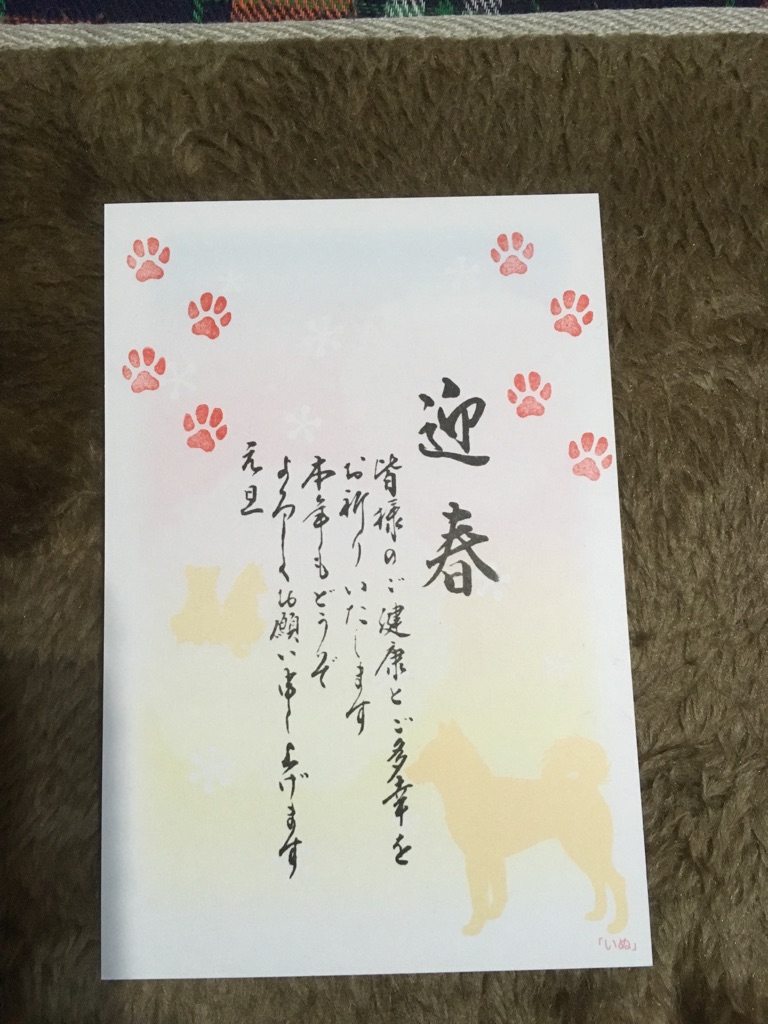 迎春
皆様のご健康とご多幸を
お祈りいたします
本年もどうぞ
よろしくお願い申し上げます
元旦
「いぬ」